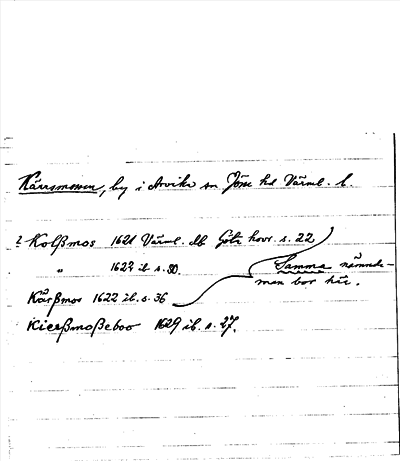 Kärrsmossen, by i Arvika sn Jösse hd Värml. l.
? Kolßmos 1621 Värml. db Göta hovr. s. 22
" 1622 ib s. 30.
Samma nämnde-
man bor här.
Kärßmos 1622 ib. s. 36
Kierßmoßeboo 1629 ib. s. 27.